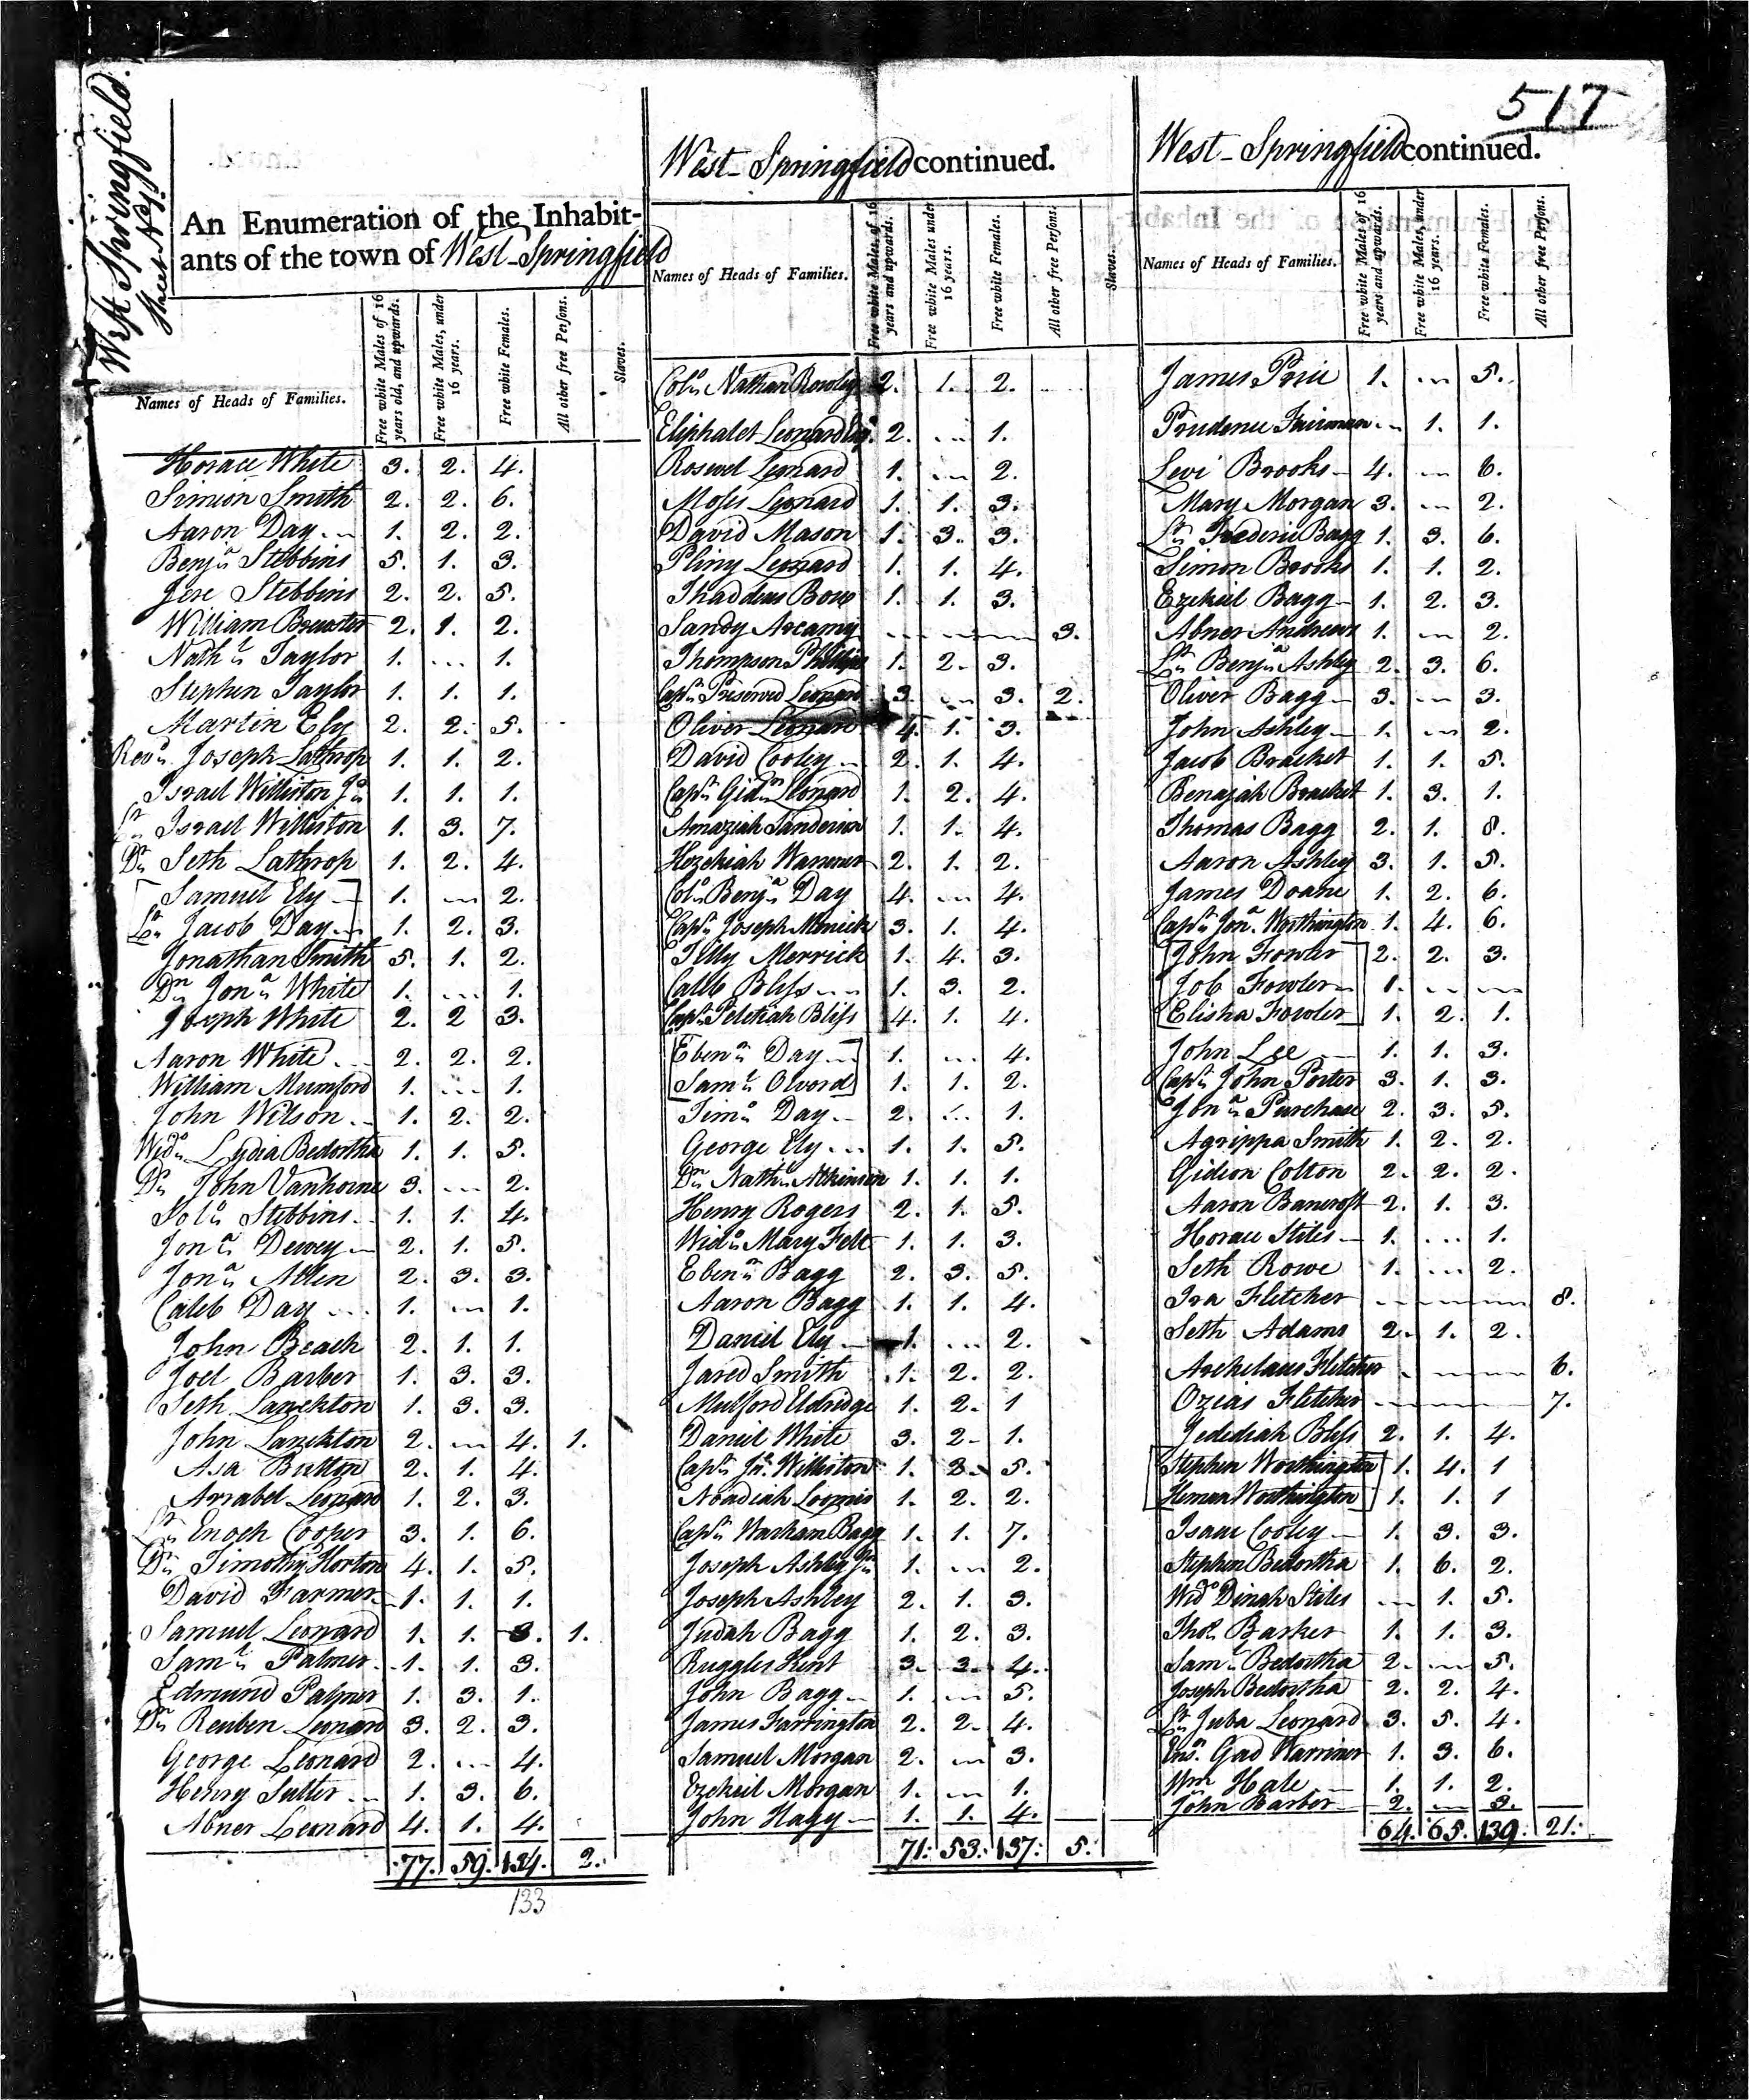 517
West Springfield.
Sheet No. 1.
An Enumeration of the Inhabit-
ants of the town of West-Springfield
Names of Heads of Families.
Free white Males of 16 years old, and upwards.
Free white Males, under 16 years.
Free white Females.
All other free Persons.
Slaves.
Horace White 3. 2. 4.
Simion Smith 2. 2. 6.
Aaron Day 1. 2. 2.
Benjn Stebbins 5. 1. 3.
Jere Stebbins 2. 2. 5.
William Brewster 2. 1. 2.
Nathl Taylor 1. ... 1.
Stephen Taylor 1. 1. 1.
Martin Ely 2. 2. 5.
Revd. Joseph Lathrop 1. 1. 2.
Israel Williston Jn 1. 1. 1.
Lt Israel Williston 1. 3. 7.
Dr Seth Lathrop 1. 2. 4.
Samuel Ely 1. ... 2.
Lt Jacob Day 1. 2. 3.
Jonathan Smith 5. 1. 2.
Dn Jona White 1. ... 1.
Joseph White 2. 2 3.
Aaron White 2. 2. 2.
William Mumford 1. ... 1.
John Wilson 1. 2. 2.
Wido Lydia Bedortha 1. 1. 5.
Dr John Vanhorne 3. ... 2.
Soln Stebbins 1. 1. 4.
Jona Dewey 2. 1. 5.
Jona Allen 2. 3. 3.
Caleb Day 1. ... 1.
John Beach 2. 1. 1.
Joel Barber 1. 3. 3.
Seth Lanckton 1. 3. 3.
John Lanckton 2. ... 4. 1.
Asa Britton 2. 1. 4.
Arrabel Leonard 1. 2. 3.
Lt Enoch Cooper 3. 1. 6.
Dr Timothy Horton 4. 1. 5.
David Farmer 1. 1. 1.
Samuel Leonard 1. 1. 3. 1.
Saml Palmer 1. 1. 3.
Edmund Palmer 1. 3. 1.
Dn Reuben Leonard 3. 2. 3.
George Leonard 2. ... 4.
Henry Sutter 1. 3. 6.
Abner Leonard 4. 1. 4.
77. 59. 134. 2.
133
West-Springfield continued.
Names of Heads of Families.
Free white Males, of 16 years and upwards.
Free white Males under 16 years.
Free white Females.
All other free Persons.
Slaves.
Coln Nathan Rowley 2. 1. 2. ...
Eliphalet Leonard Esq. 2. ... 1.
Rosewel Leonard 1. ... 2.
Moses Leonard 1. 1. 3.
David Mason 1. 3. 3.
Pliny Leonard 1. 1. 4.
Thaddeus Bow 1. 1. 3.
Sandy Arcamy ... ... ... 3.
Thompson Phillips 1. 2. 3.
Capt Preserved Leonard 3. ... 3. 2.
Oliver Leonard 4. 1. 3.
David Cooley 2. 1. 4.
Capt Gidn Leonard 1. 2. 4.
Amaziah Sanderson 1. 1. 4.
Hezekiah Warriner 2. 1. 2.
Coln Benjn Day 4. ... 4.
Capt Joseph Merrick 3. 1. 4.
Tilly Merrick 1. 4. 3.
Caleb Bliss 1. 3. 2.
Capt Pelatiah Bliss 4. 1. 4.
Ebenr Day 1. ... 4.
Saml Olvord 1. 1. 2.
Timo Day 2. ... 1.
George Ely 1. 1. 5.
Dn Nathl Atkinson 1. 1. 1.
Henry Rogers 2. 1. 5.
Wido Mary Felt 1. 1. 3.
Ebenr Bagg 2. 3. 5.
Aaron Bagg 1. 1. 4.
Daniel Ely 1. ... 2.
Jared Smith 1. 2. 2.
Mulford Eldridge 1. 2. 1
Daniel White 3. 2 1.
Capt Jno. Williston 1. 3. 5.
Noadiah Loomis 1. 2. 2.
Capt Warham Bagg 1. 1. 7.
Joseph Ashley Jn 1. ... 2.
Joseph Ashley 2. 1. 3.
Judah Bagg 1. 2. 3.
Ruggles Kent 3. 3. 4.
John Bagg 1. ... 5.
James Farrington 2. 2. 4.
Samuel Morgan 2. ... 3.
Ezekiel Morgan 1. ... 1.
John Nagg 1. 1. 4.
71. 53. 137. 5.
West-Springfield continued.
Names of Heads of Families.
Free white Males of 16 years and upwards.
Free white Males, under 16 years.
Free white Females.
All other free Persons.
James Price 1. ... 5.
Prudence Fairman ... 1. 1.
Levi Brooks 4. ... 6.
Mary Morgan 3. ... 2.
Lt Frederic Bagg 1. 3. 6.
Simon Brooks 1. 1. 2.
Ezekiel Bagg 1. 2. 3.
Abner Andrews 1. ... 2.
Lt Benjn Ashley 2. 3. 6.
Oliver Bagg 3. ... 3.
John Ashley 1. ... 2.
Jacob Bracket 1. 1. 5.
Benajah Bracket 1. 3. 1.
Thomas Bagg 2. 1. 8.
Aaron Ashley 3. 1. 5.
James Doane 1. 2. 6.
Capt Jona. Worthington 1. 4. 6.
John Fowler 2. 2. 3.
Job Fowler 1. ... ...
Elisha Fowler 1. 2. 1.
John Lee 1. 1. 3.
Capt John Porter 3. 1. 3.
Jona Purchase 2. 3. 5.
Agrippa Smith 1. 2. 2.
Gideon Colton 2. 2. 2.
Aaron Bancroft 2. 1. 3.
Horace Stiles 1. ... 1.
Seth Rowe 1. ... 2.
Ira Fletcher ... ... ... 8.
Seth Adams 2. 1. 2.
Archelaus Fletcher ... ... 6.
Ozias Fletcher ... ... ... 7.
Jedidiah Bliss 2. 1. 4.
Stephen Worthington 1. 4. 1
Heman Worthington 1. 1. 1
Isaac Cooley 1. 3. 3.
Stephen Bedortha 1. 6. 2.
Wido Dinah Stiles ... 1. 5.
Thos. Barker 1. 1. 3.
Saml Bedortha 2. ... 5.
Joseph Bedortha 2. 2. 4.
Lt Juba Leonard 3. 5. 4.
Ensn. Gad Warriner 1. 3. 6.
Wm Hale 1. 1. 2.
John Barber 2. ... 3.
64. 65. 139. 21.